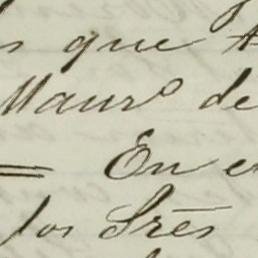 que
Maurº de
= En
los Srēs